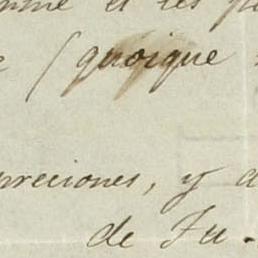 et les
(quoique
preciones, y
de Fu-